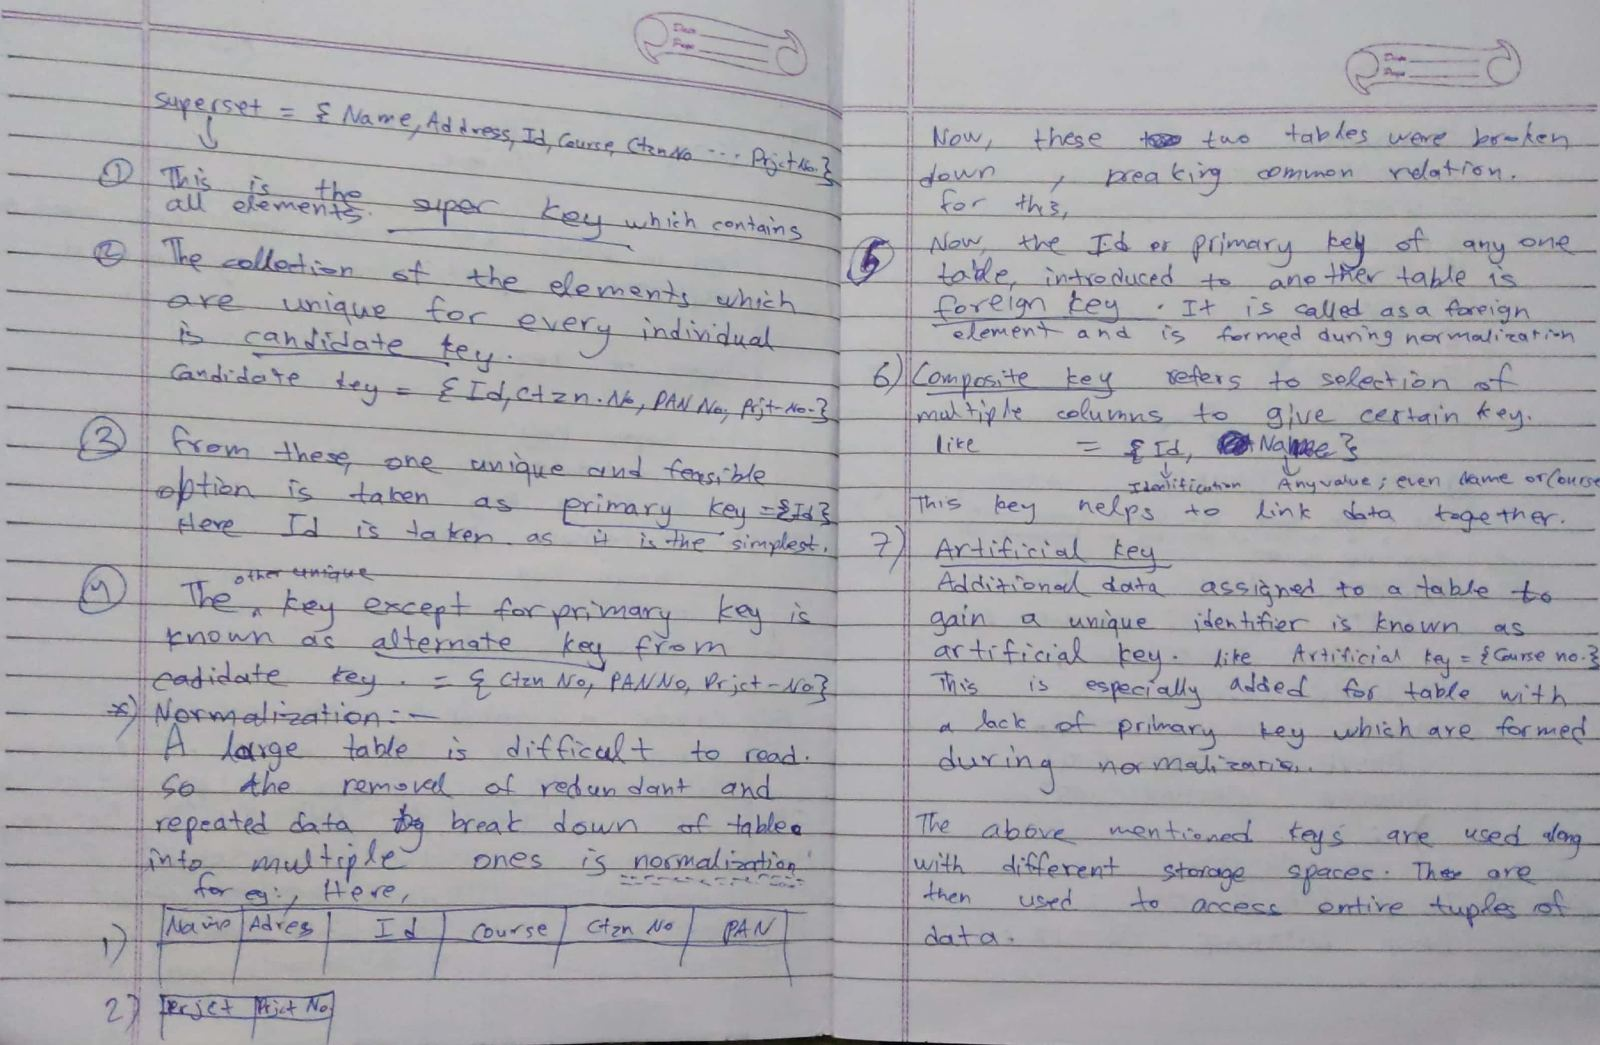 Date
Page
superset = { Name, Address, Id, Course, Ctzn No ... Prjct No.}
① This is the super key which contains
all elements.
② The collection of the elements which
are unique for every individual
is candidate key.
Candidate key = { Id, Ctzn. No, PAN No, Prjt-No.}
③ from these, one unique and feasible
option is taken as primary key = {Id}
Here Id is taken as it is the simplest.
④ The other unique key except for primary key is
known as alternate key from
cadidate key. = { Ctzn No, PAN No, Prjct-No}
*) Normalization:-
A large table is difficult to read.
So the removal of redundant and
repeated data by break down of table
into multiple ones is normalization
for eg:, Here,
1) Name Adres Id Course Ctzn No PAN
2) Prjct Prjct No
Date
Page
Now, these two tables were broken
down, breaking common relation.
for this,
5 Now, the Id or primary key of any one
table, introduced to another table is
foreign key. It is called as a foreign
element and is formed during normalization
6) Composite key refers to selection of
multiple columns to give certain key.
like = { Id, Name }
Identification Any value; even name or Course
This key helps to link data together.
7) Artificial key
Additional data assigned to a table to
gain a unique identifier is known as
artificial key. like Artificial key = {Course no.}
This is especially added for table with
a lack of primary key which are formed
during normalization.
The above mentioned keys are used along
with different storage spaces. are
then used to access entire tuples of
data.